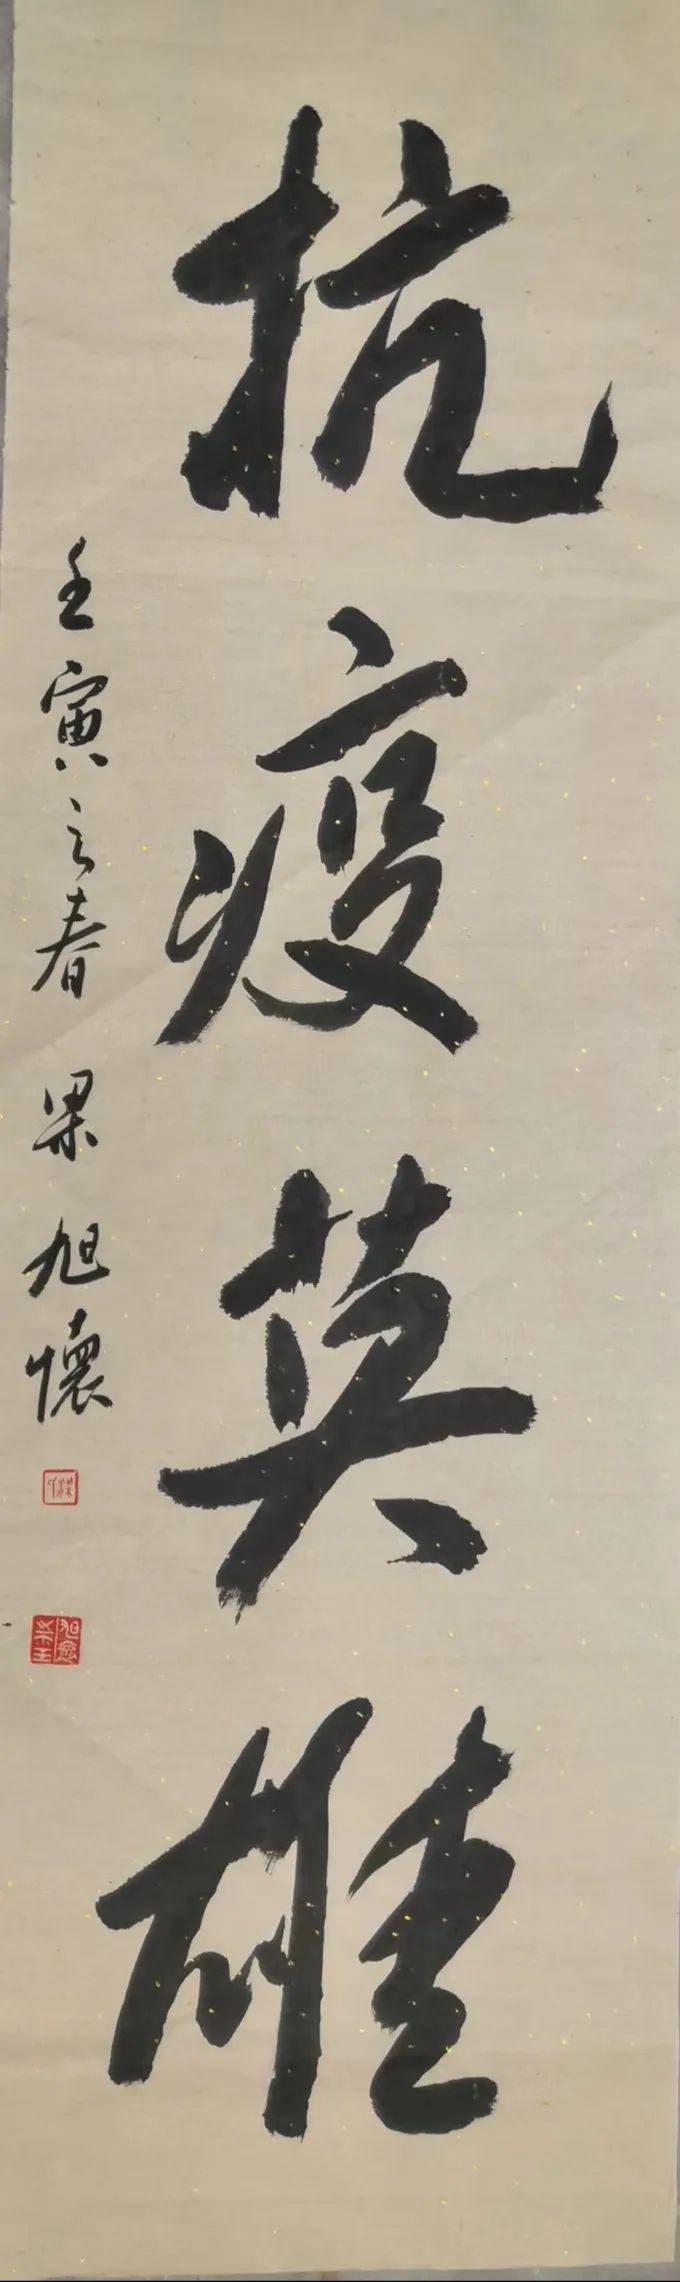 抗疫英雄
壬寅之春 梁旭懷